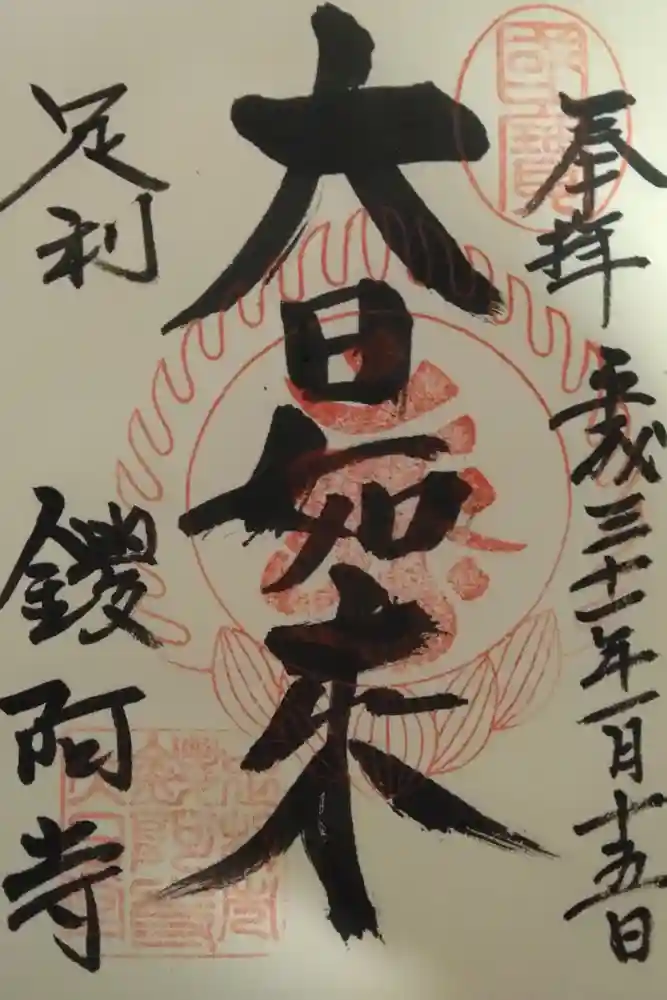 奉拝 平成三十一年一月十五日
國寳
大日如来
足利 鑁阿寺